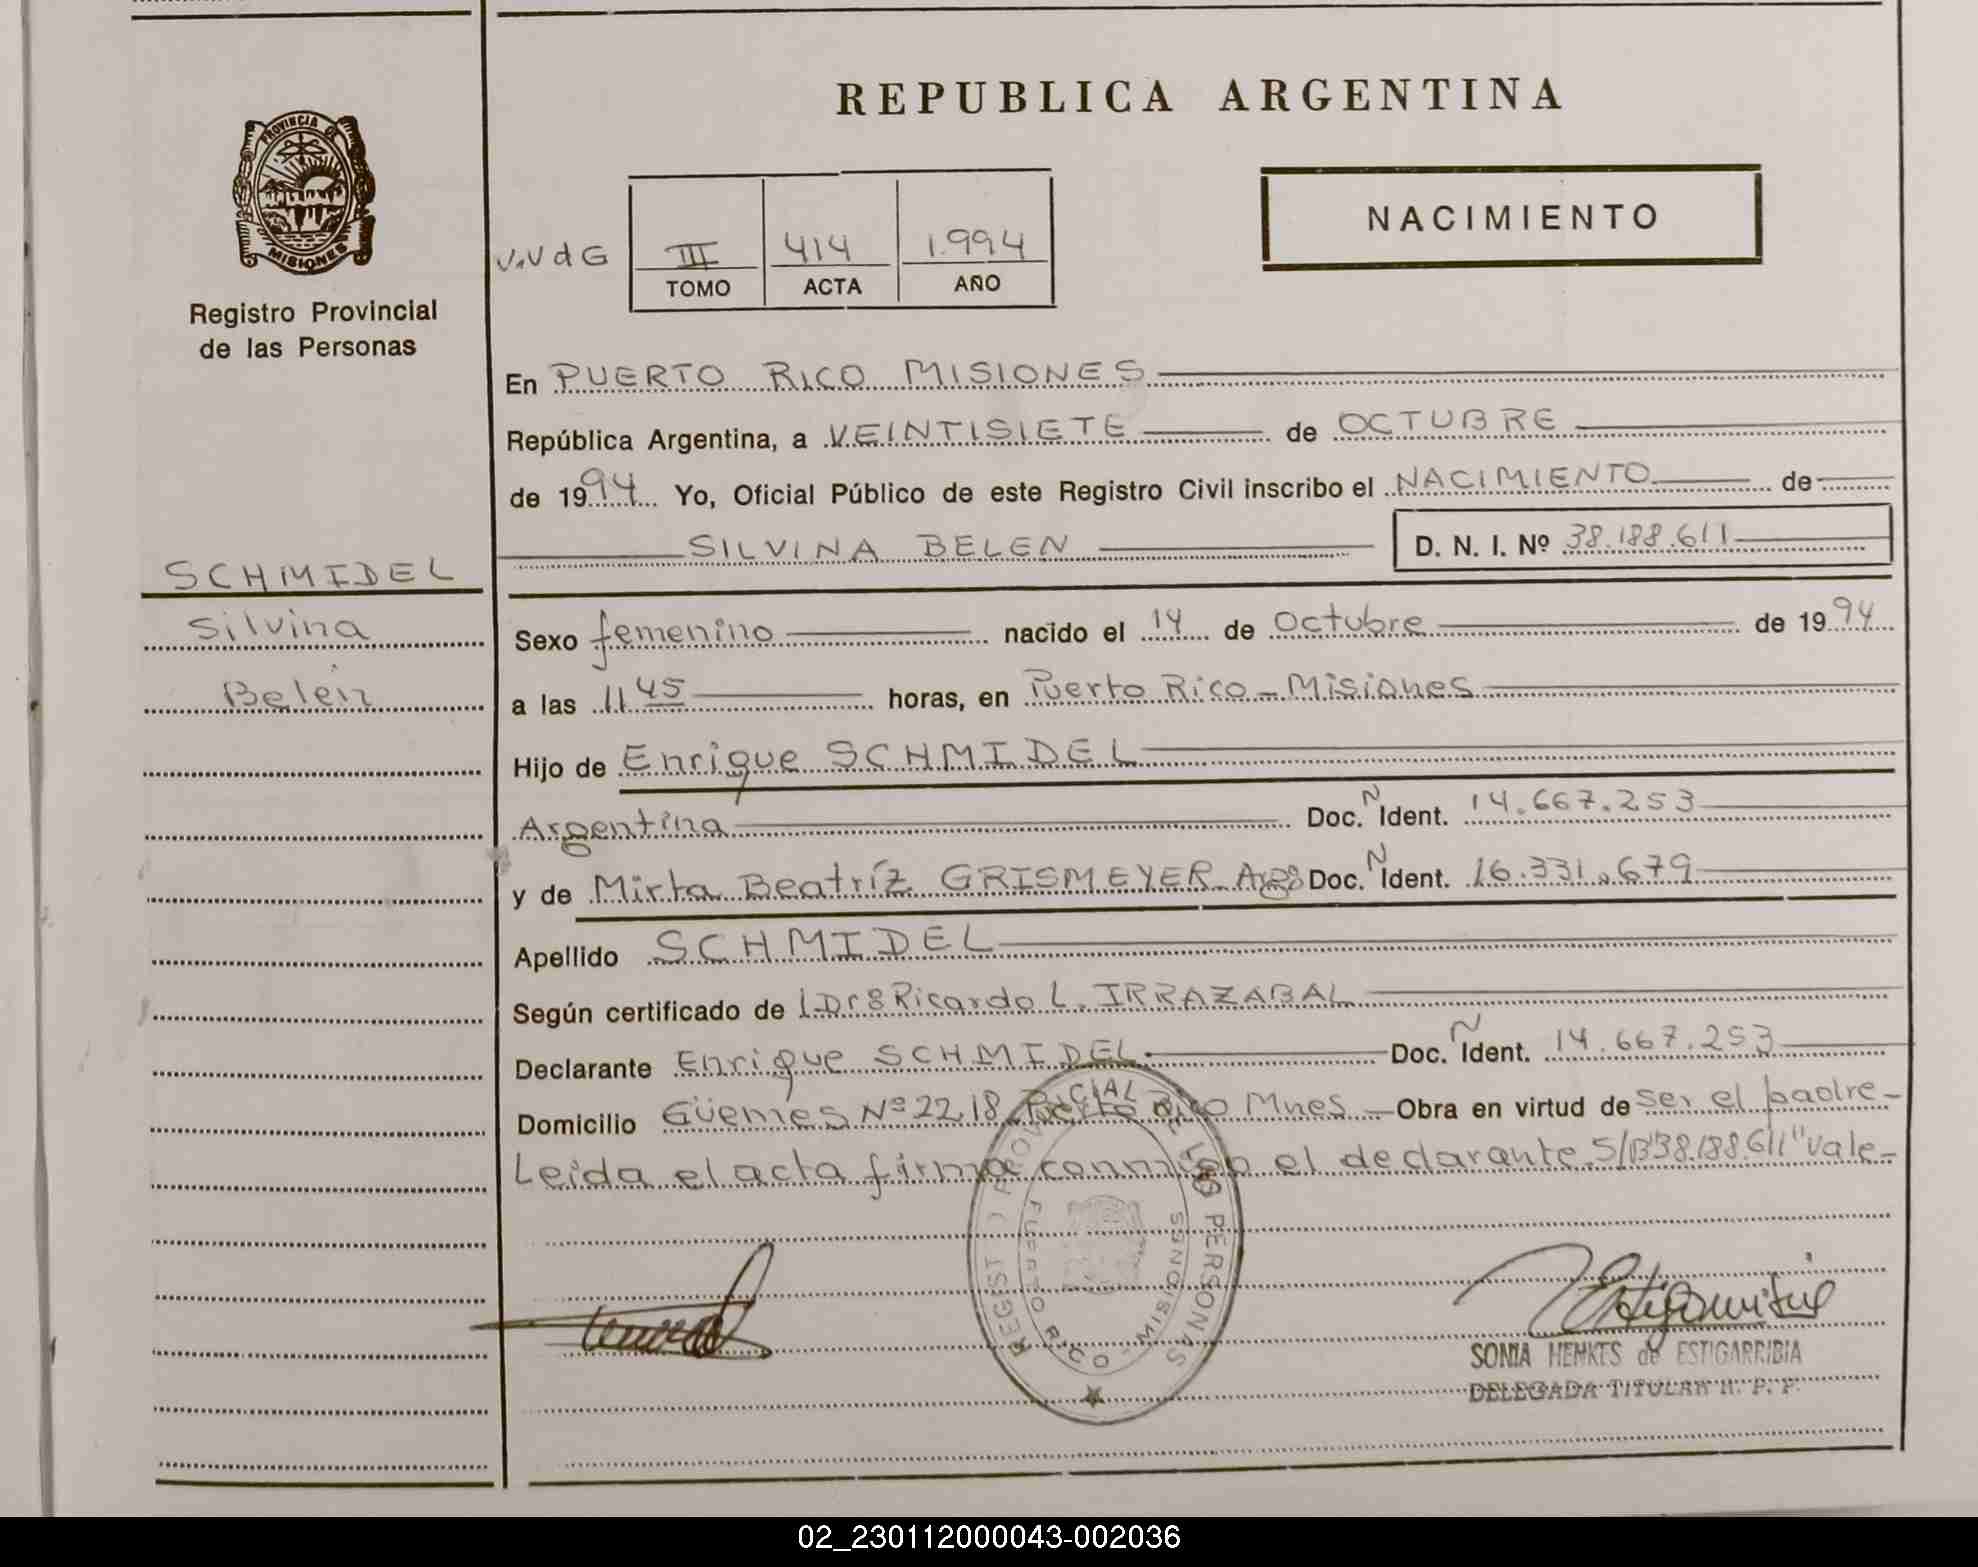 REPUBLICA ARGENTINA
PROVINCIA DE
MISIONES
Registro Provincial
de las Personas
NACIMIENTO
V.V d G
III 414 1.994
TOMO ACTA AÑO
En PUERTO RICO MISIONES
República Argentina, a VEINTISIETE de OCTUBRE
de 1994 Yo, Oficial Público de este Registro Civil inscribo el NACIMIENTO de
SILVINA BELEN D. N. I. Nº 38.188.611
SCHMIDEL
Silvina
Belen
Sexo femenino nacido el 14 de Octubre de 1994
a las 11 45 horas, en Puerto Rico - Misiones
Hijo de Enrique SCHMIDEL
Argentina Doc. N Ident. 14.667.253
y de Mirta Beatríz GRISMEYER Arg Doc. N Ident. 16.331.679
Apellido SCHMIDEL
Según certificado de Dr. Ricardo L. IRRAZABAL
Declarante Enrique SCHMIDEL Doc. N Ident. 14.667.253
Domicilio Güemes Nº 2218 Puerto Rico Mnes - Obra en virtud de ser el padre -
Leida el acta firma conmigo el declarante S/B"38.188.611" vale -
REGIST PROVINCIAL DE LAS PERSONAS
PUERTO RICO - MISIONES
SONIA HENKES de ESTIGARRIBIA
DELEGADA TITULAR R. P. P.
02_230112000043-002036